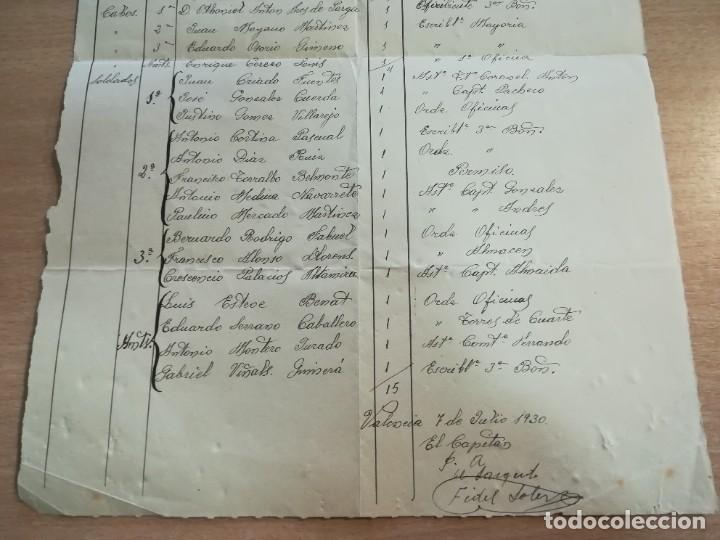 Cabos. 1ª D. Othoniel Anton 1 Escribiente 3er Bon.
2ª Juan Moyano Martinez 1 Escribtª Mayoria
3ª Eduardo Osorio Gimeno 1 " "
Amts. Enrique Cerero 1 " 1ª Oficina
Soldados Juan Criado Fuentes 1 Astª Tt Coronel Anton
1.ª José Gonzalez Cuerda 1 " Captn Pachero
Justino Gomez Villarejo 1 Ordz Oficinas
Antonio Cortina Pascual 1 Escribtª 3er Bon.
Antonio Diaz Ruiz 1 Ordz "
2.ª Francisco Torralbo Belmonte 1 Permiso
Antonio Medina Navarrete 1 Astª Captn Gonzalez
Paulino Mercado Martinez 1 " " Andres
Bernardo Rodrigo 1 Ordz Oficinas
3.ª Francisco Alonso Llorens 1 " Almacen
Crescencio Palacios Altamira 1 Astª Captn Almaida
Luis Esteve Benat 1 Ordz Oficinas
Eduardo Serrano Caballero 1 " Torres de Cuarte
Amts. Antonio Montero Jurado 1 Astª Comtª Serrando
Gabriel Viñals Guimerá 1 Escribtª 3er Bon.
15
Valencia 7 de Julio 1930
El Capitán
P. A
el Sargento
Fidel Soler
todocoleccion
todocoleccion.net